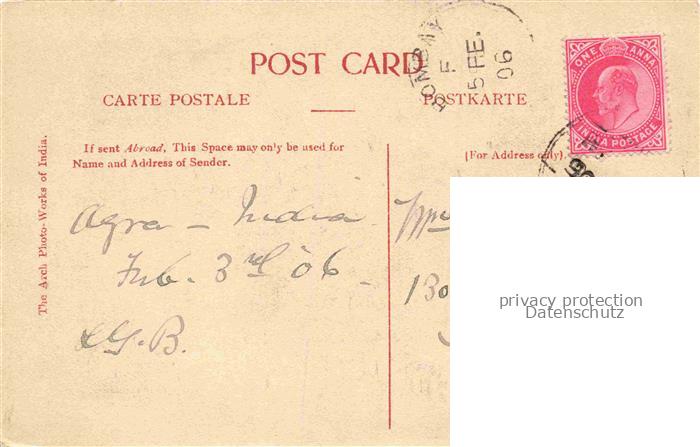 POST CARD
CARTE POSTALE
POSTKARTE
BOMBAY
F
5 FE.
06
ONE ANNA
INDIA POSTAGE
If sent Abroad, This Space may only be used for
Name and Address of Sender.
(For Address only).
The Arch Photo-Works of India.
Agra - India
Feb. 3rd '06 -
G.B.
privacy protection
Datenschutz